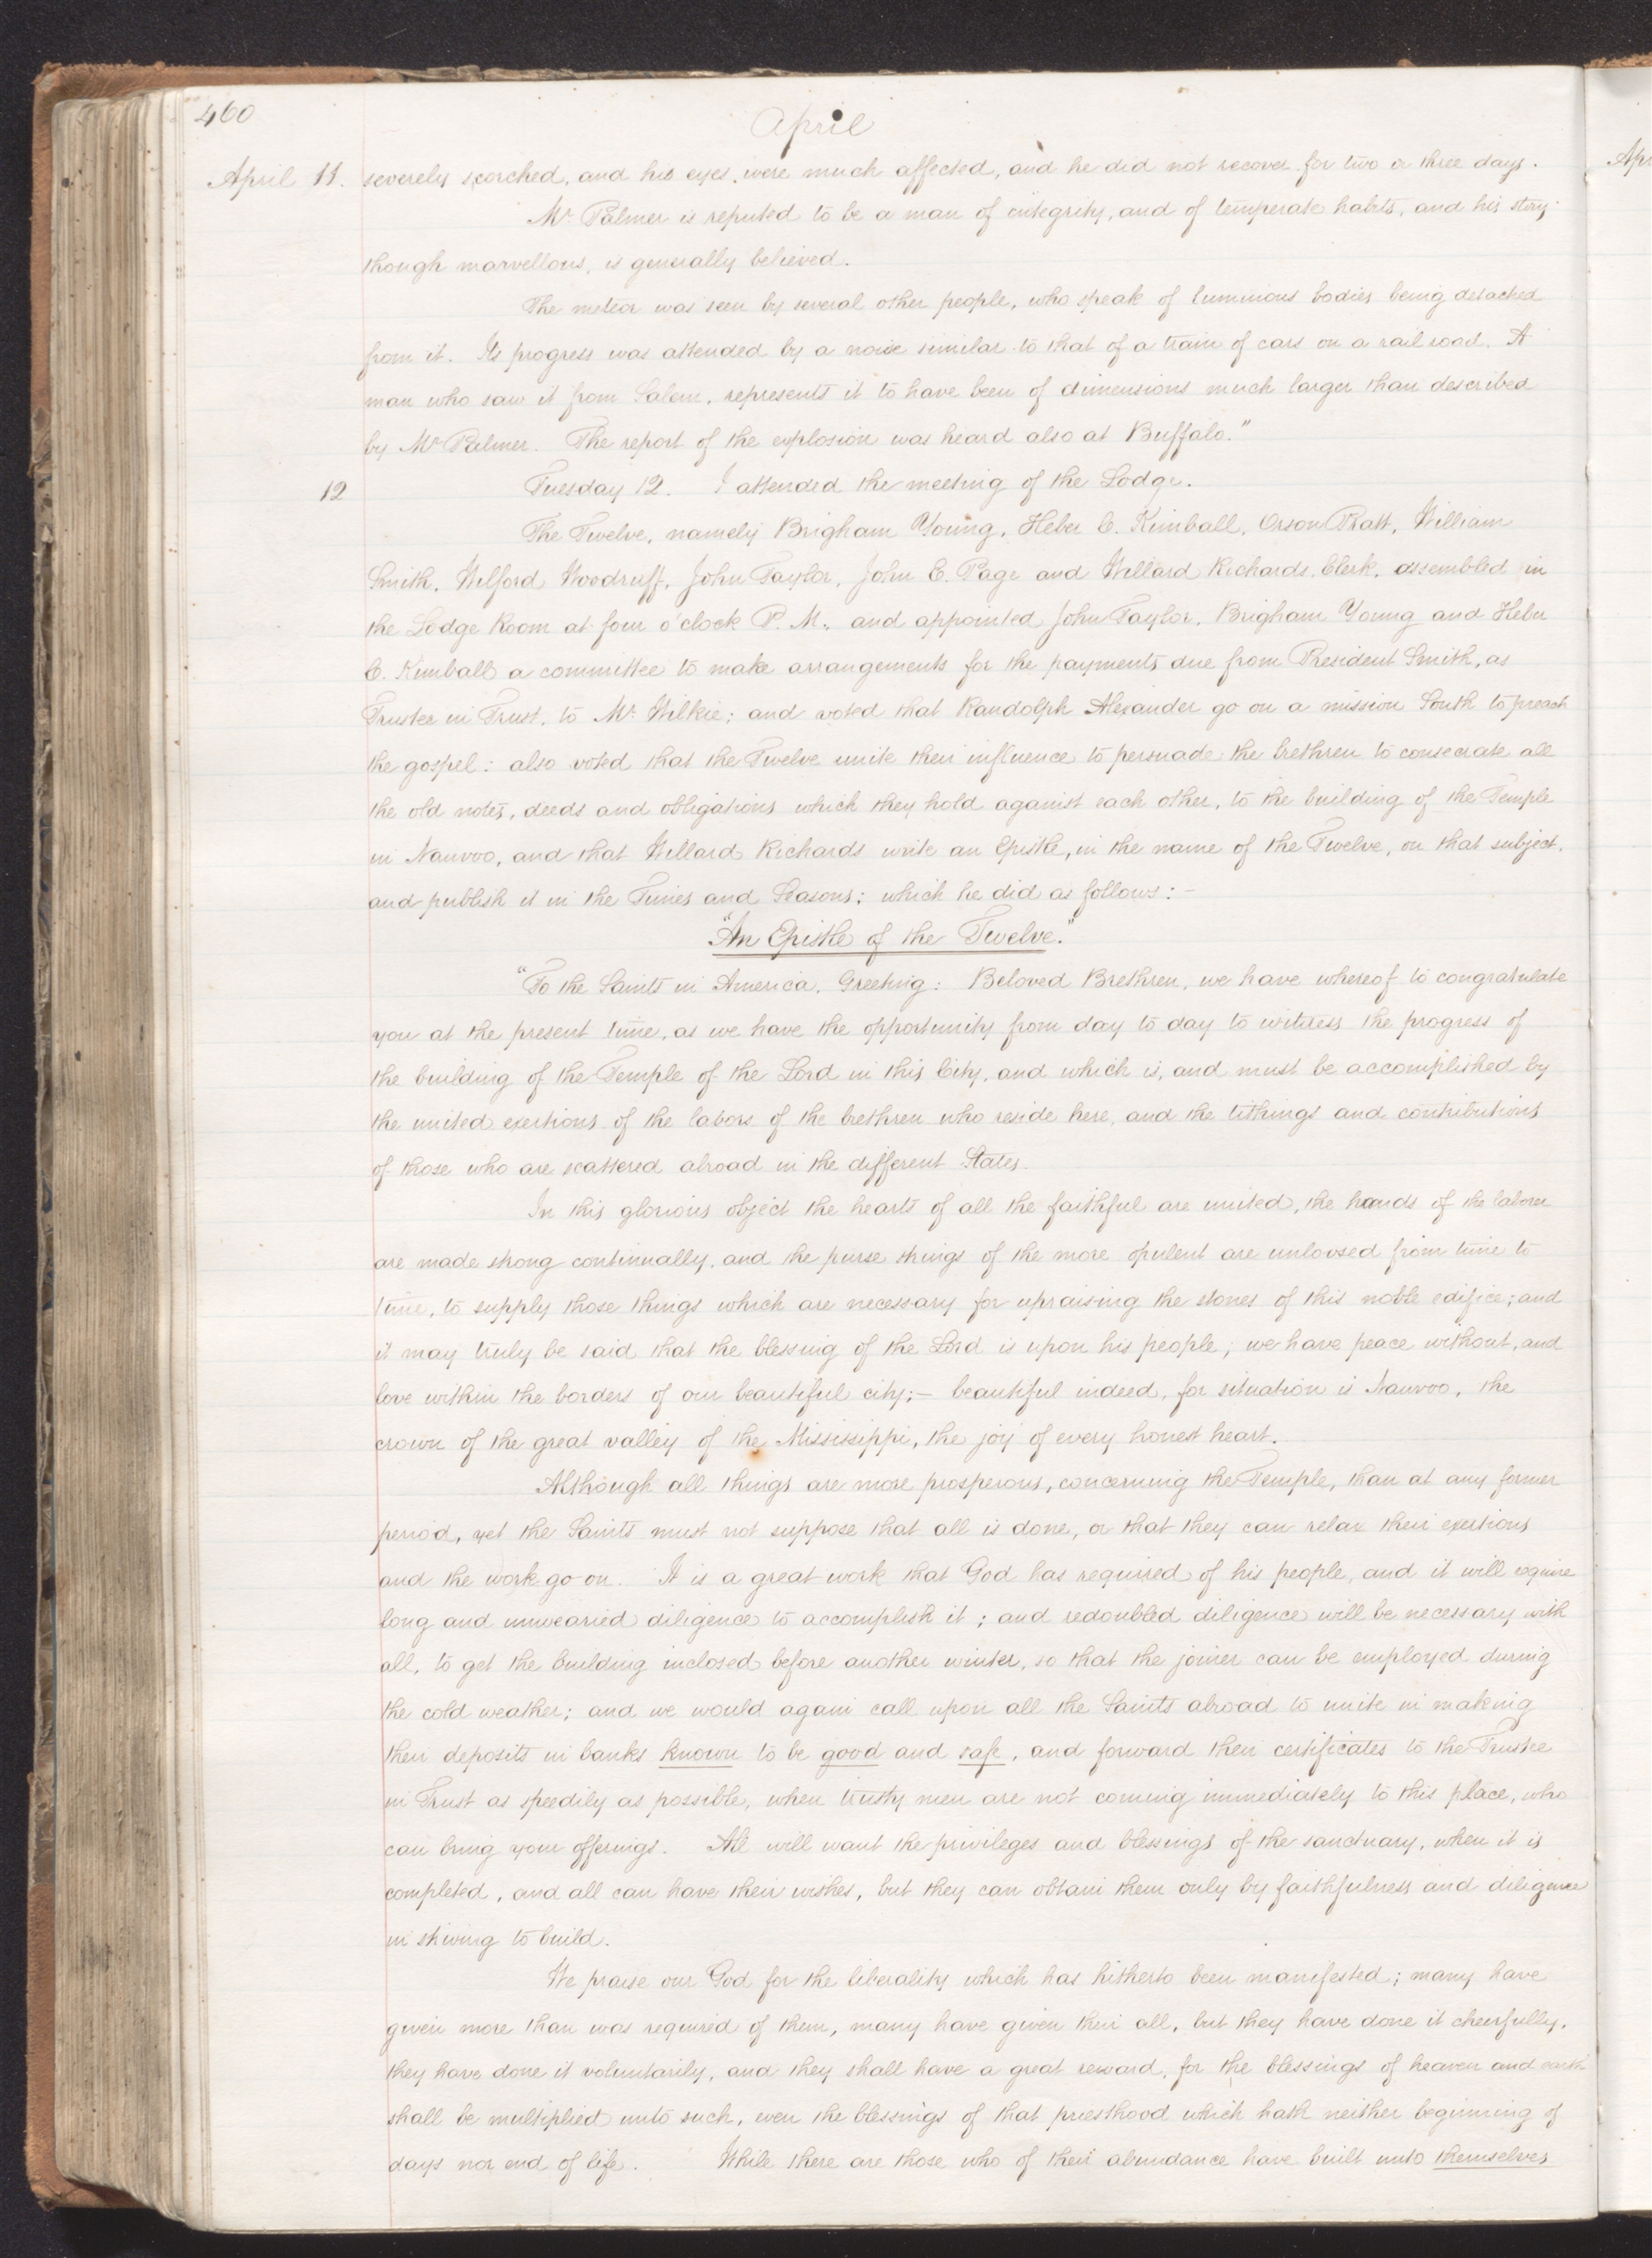 460
April
April 11. severely scorched, and his eyes were much affected, and he did not recover for two or three days.
Mr. Palmer is reputed to be a man of integrity, and of temperate habits, and his story
though marvellous, is generally believed.
The meteor was seen by several other people, who speak of luminous bodies being detached
from it. Its progress was attended by a noise similar to that of a train of cars on a rail road. A
man who saw it from Salem, represents it to have been of dimensions much larger than described
by Mr Palmer. The report of the explosion was heard also at Buffalo."
12 Tuesday 12. I attended the meeting of the Lodge.
The Twelve, namely Brigham Young, Heber C. Kimball, Orson Pratt, William
Smith, Wilford Woodruff, John Taylor, John E. Page and Willard Richards, Clerk, assembled in
the Lodge Room at four o'clock P. M., and appointed John Taylor, Brigham Young and Heber
C. Kimball a committee to make arrangements for the payments due from President Smith, as
Trustee in Trust, to Mr. Wilkie; and voted that Randolph Alexander go on a mission South to preach
the gospel: also voted that the Twelve unite their influence to persuade the brethren to consecrate all
the old notes, deeds and obligations which they hold against each other, to the building of the Temple
in Nauvoo, and that Willard Richards write an Epistle, in the name of the Twelve, on that subject,
and publish it in the Times and Seasons; which he did as follows: –
"An Epistle of the Twelve."
"To the Saints in America, Greeting: Beloved Brethren, we have whereof to congratulate
you at the present time, as we have the opportunity from day to day to witness the progress of
the building of the Temple of the Lord in this City, and which is, and must be accomplished by
the united exertions of the labors of the brethren who reside here, and the tithings and contributions
of those who are scattered abroad in the different States.
In this glorious object the hearts of all the faithful are united, the hands of the laborer
are made strong continually, and the purse strings of the more opulent are unloosed from time to
time, to supply those things which are necessary for upraising the stones of this noble edifice; and
it may truly be said that the blessing of the Lord is upon his people; we have peace without, and
love within the borders of our beautiful city; – beautiful indeed, for situation is Nauvoo, the
crown of the great valley of the Mississippi, the joy of every honest heart.
Although all things are more prosperous, concerning the Temple, than at any former
period, yet the Saints must not suppose that all is done, or that they can relax their exertions
and the work go on. It is a great work that God has required of his people, and it will require
long and unwearied diligence to accomplish it; and redoubled diligence will be necessary with
all, to get the building inclosed before another winter, so that the joiner can be employed during
the cold weather; and we would again call upon all the Saints abroad to unite in making
their deposits in banks known to be good and safe, and forward their certificates to the Trustee
in Trust as speedily as possible, when trusty men are not coming immediately to this place, who
can bring your offerings. All will want the privileges and blessings of the sanctuary, when it is
completed, and all can have their wishes, but they can obtain them only by faithfulness and diligence
in striving to build.
We praise our God for the liberality which has hitherto been manifested; many have
given more than was required of them, many have given their all, but they have done it cheerfully,
they have done it voluntarily, and they shall have a great reward, for the blessings of heaven and earth
shall be multiplied unto such, even the blessings of that priesthood which hath neither beginning of
days nor end of life. While there are those who of their abundance have built unto themselves
Apr